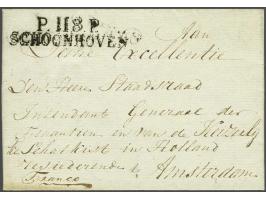 P.118.P.
SCHOONHOVEN
Aan
Zyne Excellentie
Den Heere Staadsraad
Intendant Generaal der
Finantien en van de Keizerly
ke Schatkist in Holland
residerende te Amsterdam
Franco